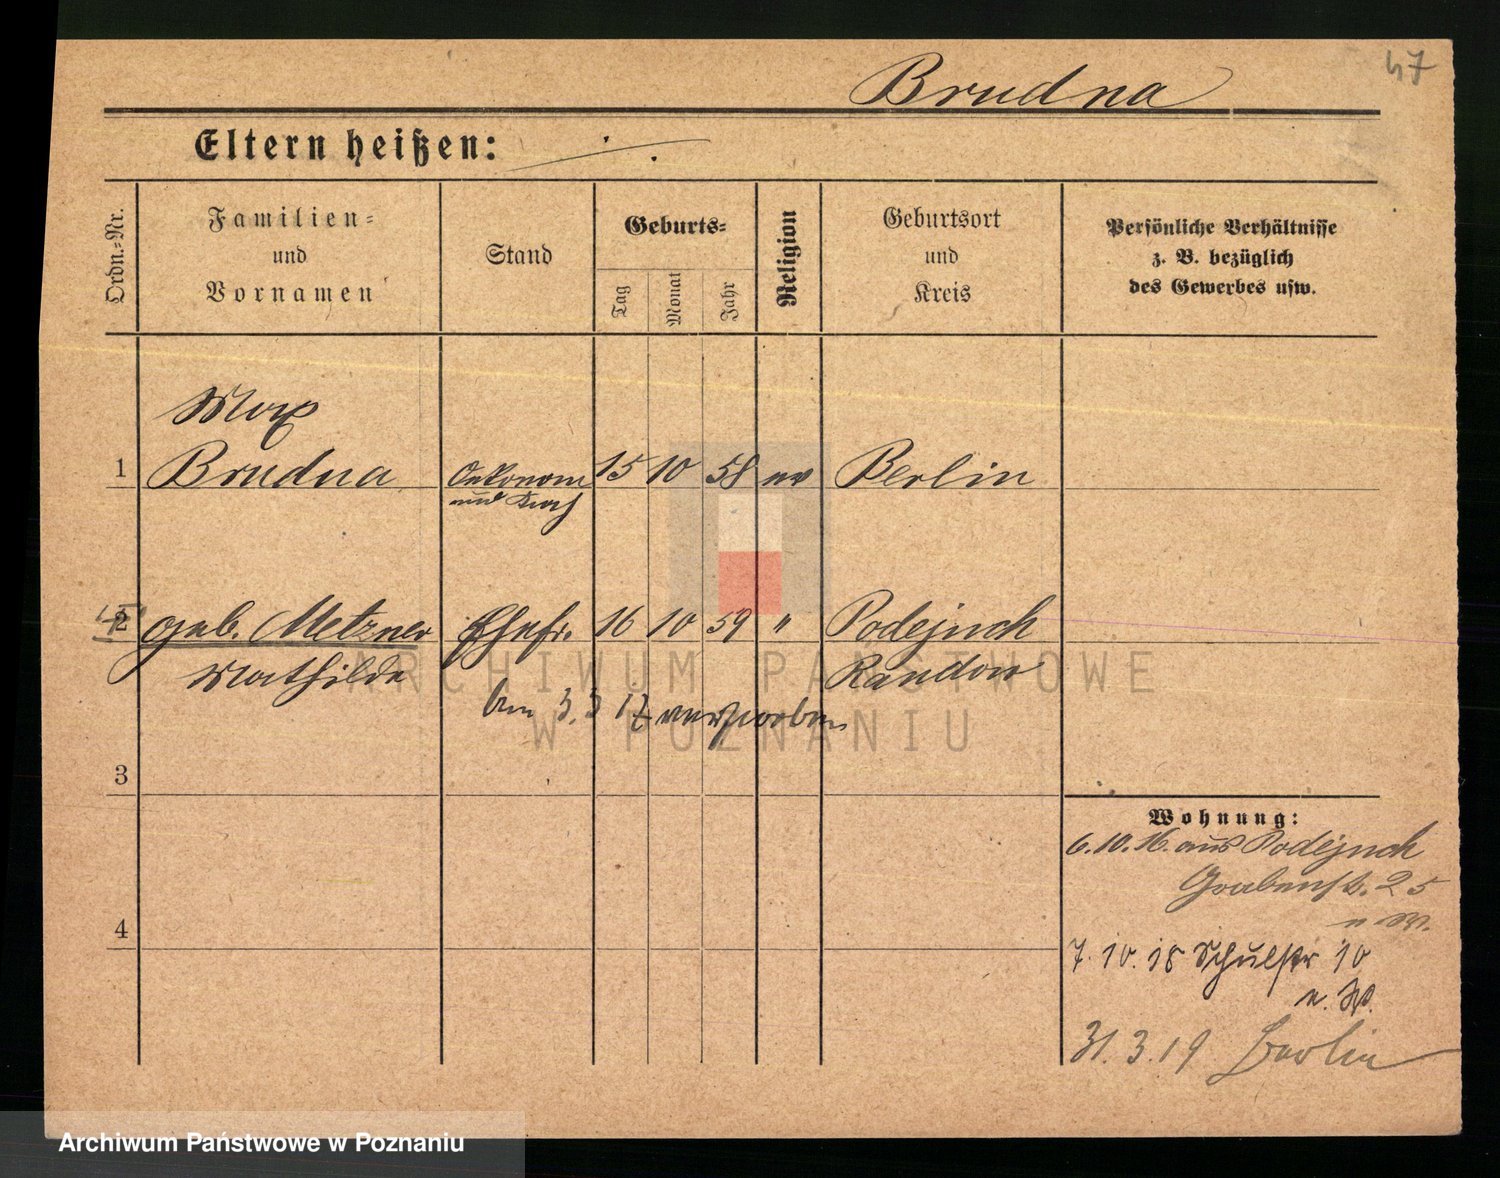 47
Brudna
Eltern heißen:
Ordn.-Nr.
Familien-
und
Vornamen
Stand
Geburts-
Tag
Monat
Jahr
Religion
Geburtsort
und
Kreis
Persönliche Verhältnisse
z. B. bezüglich
des Gewerbes usw.
Max
1 Brudna Oekonom 15 10 58 ev Berlin
und Koch
2 geb. Metzner Ehefr. 16 10 59 " Podejuch
Mathilde Randow
Am 3.3 17 verstorben
3
4
Wohnung:
6.10.16. aus Podejuch
Grabenstr. 25
7.10.18 Schulstr 10
31.3.19 Berlin
ARCHIWUM PAŃSTWOWE
W POZNANIU
Archiwum Państwowe w Poznaniu